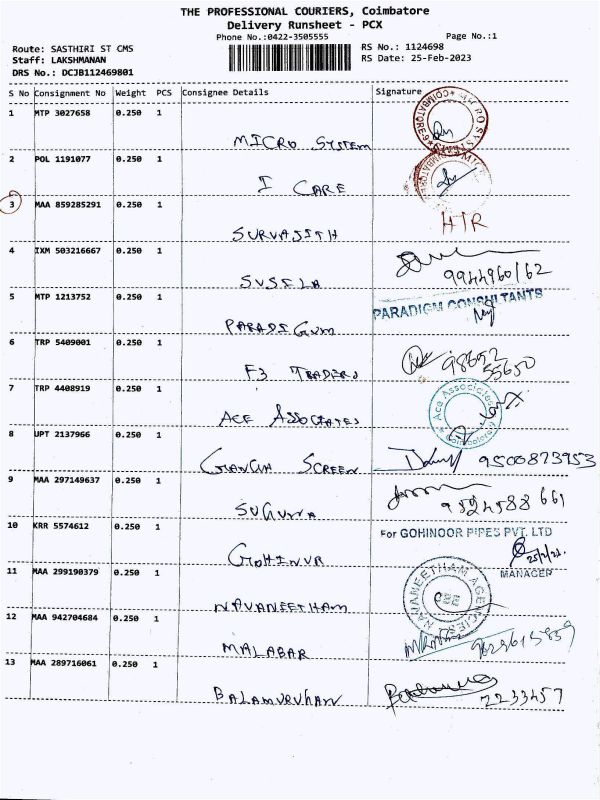 THE PROFESSIONAL COURIERS, Coimbatore
Delivery Runsheet - PCX
Phone No.:0422-3505555 Page No.:1
Route: SASTHIRI ST CMS RS No.: 1124698
Staff: LAKSHMANAN RS Date: 25-Feb-2023
DRS No.: DCJB112469801
S No Consignment No Weight PCS Consignee Details Signature
1 MTP 3027658 0.250 1
MICRO SYSTEM
2 POL 1191077 0.250 1
I CARE
3 MAA 859285291 0.250 1
SURVAJITH HTR
4 IXM 503216667 0.250 1
SUSELA 9944960162
5 MTP 1213752 0.250 1
PARADIGUM PARADIGM CONSULTANTS
6 TRP 5409001 0.250 1
F3 TRADERS 98652 55650
7 TRP 4408919 0.250 1
ACE ASSOCIATES Ace Associates Coimbatore
8 UPT 2137966 0.250 1
GANGA SCREEN 9500873953
9 MAA 297149637 0.250 1
SUGUNA 9524588 661
10 KRR 5574612 0.250 1
For GOHINOOR PIPES PVT. LTD
GOHINUR
MANAGER
11 MAA 299190379 0.250 1
NAVANEETHAM NAVANEETHAM AGENCIES
12 MAA 942704684 0.250 1
MALABAR
13 MAA 289716061 0.250 1
BALAMURUHAN 2233457